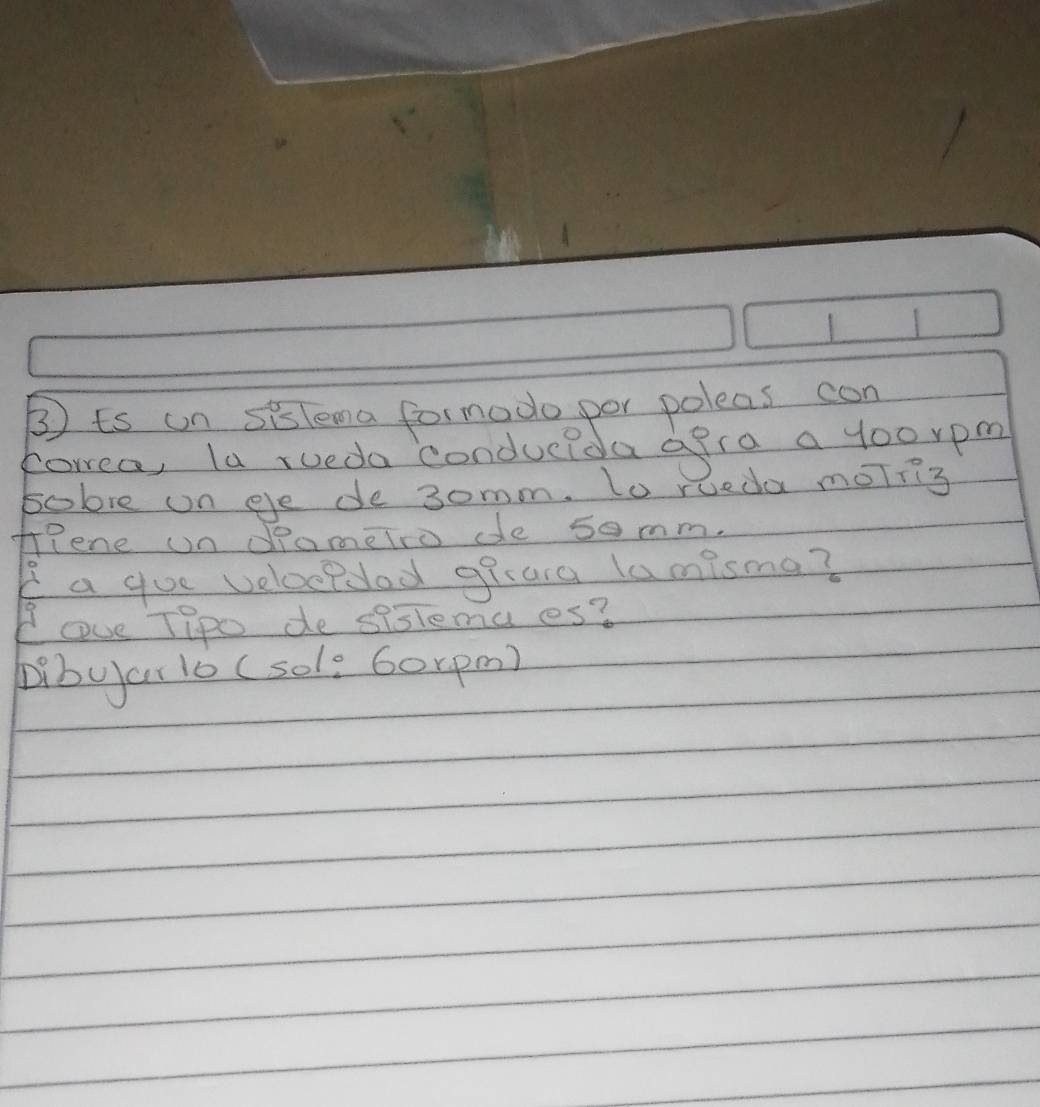 3) Es un sistema formado por poleas con
correa, la rueda conducida gira a 400rpm
sobre un eje de 30mm. la rueda motriz
tiene un diametro de 50mm.
¿ a que velocidad girara la misma?
¿ Que Tipo de sistema es?
Dibujarlo (sol: 60rpm)